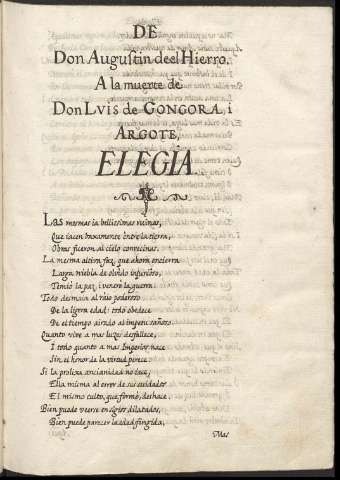 DE
Don Augustin deel Hierro.
A la muerte de
DON LVIS de GONGORA, i
ARGOTE,
ELEGIA
LAS mesmas la bellissimas ruinas,
Que iacen baxamente entre la tierra,
Obras fueron al cielo convecinas.
La mesma altiva faz, que ahora encierra
Larga niebla de olvido
Temiò la paz, i venerò la guerra.
Todo desmaia al raio poderoso
De la ligera edad: todo obedece
De el tiempo airado al impetu sañoso.
Quanto vive a mas luzes desfallece,
I todo quanto a mas Imperios nace
Sin el honor de la virtud perece.
Si la prolixa ancianidad
Ella misma al error de sus cuidados
El mismo culto, que formò, deshace.
Bien puede veerse en siglos dilatados,
Bien puede parecer la edad fingida,
Mas